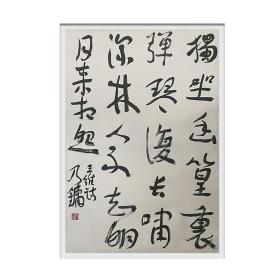 獨坐幽篁裏
彈琴復長嘯
深林人不知明
月來相照
王維詩
乃鏞